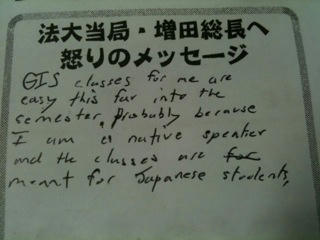 法大当局・増田総長へ
怒りのメッセージ
GIS classes for me are
easy this far into the
semester, Probably because
I am a native speaker
and the classes are for
meant for Japanese students,